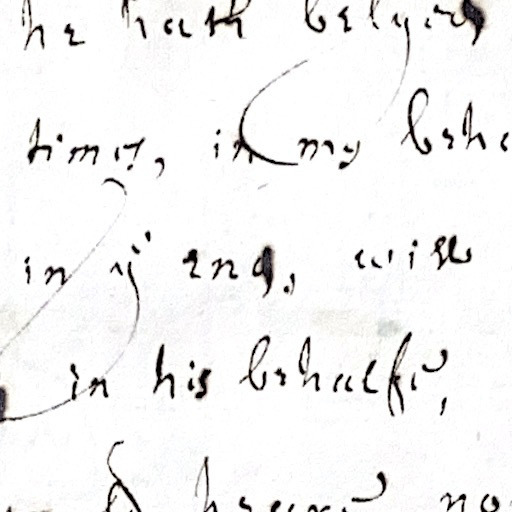 he hath belyed
times, in my beha
in ÿ end, will
in his behalfe,
heare no